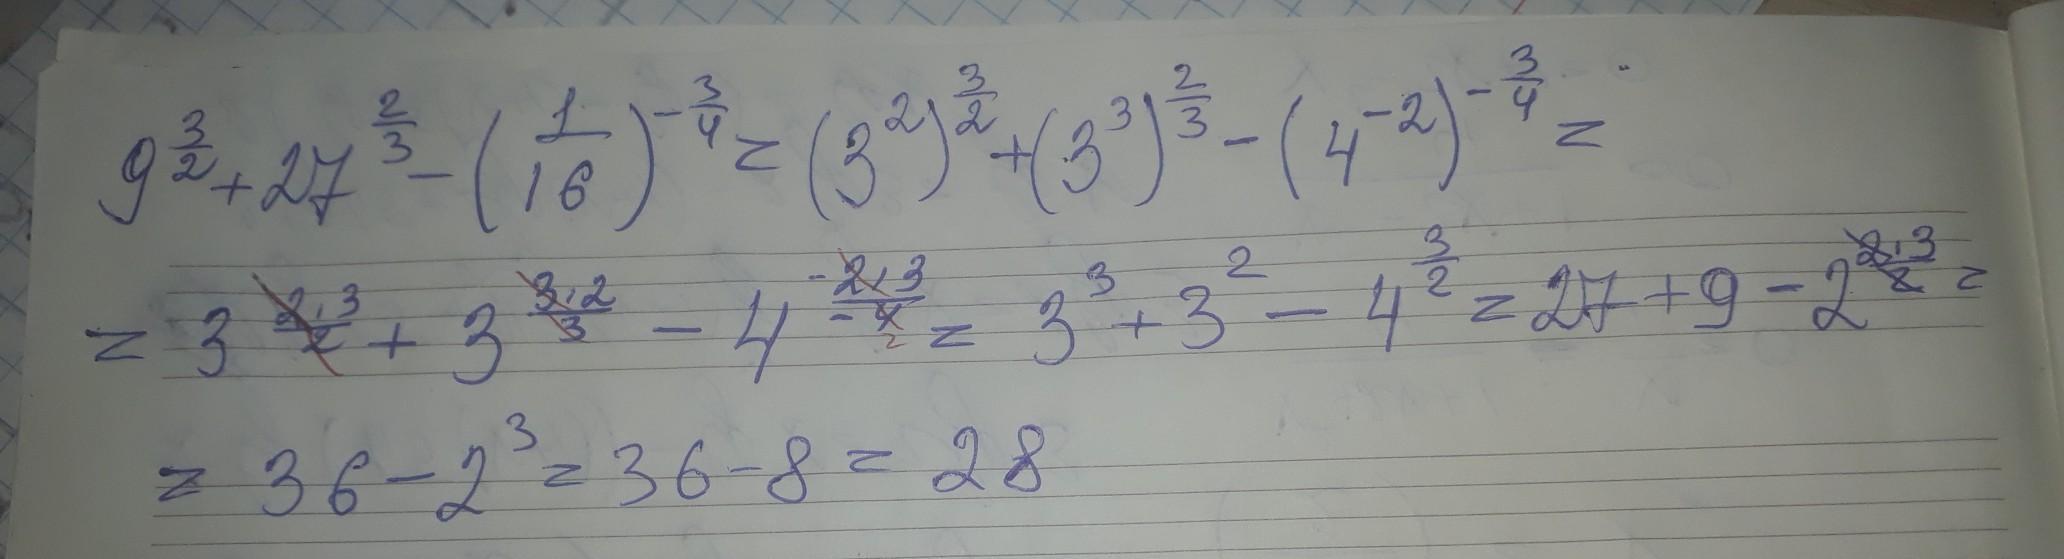 9^{3/2} + 27^{2/3} - (1/16)^{-3/4} = (3^2)^{3/2} + (3^3)^{2/3} - (4^{-2})^{-3/4} =
= 3^{2·3/2} + 3^{3·2/3} - 4^{-2·3/-4} = 3^3 + 3^2 - 4^{3/2} = 27 + 9 - 2^{2·3/2} =
= 36 - 2^3 = 36 - 8 = 28